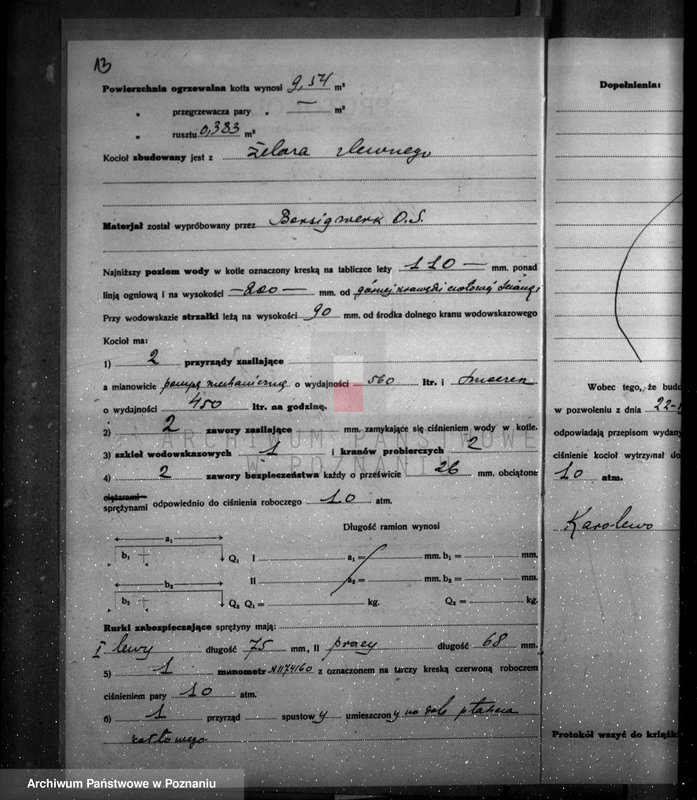 13
Powierzchnia ogrzewalna kotła wynosi 9,54 m²
" przegrzewacza pary " — m²
" rusztu 0,383 m²
Kocioł zbudowany jest z żelaza zlewnego
Materjał został wypróbowany przez Borsigwerk O.S.
Najniższy poziom wody w kotle oznaczony kreską na tabliczce leży 110 — mm. ponad
linją ogniową i na wysokości — 200 — mm. od górnej krawędzi czołowej ściany
Przy wodowskazie strzałki leżą na wysokości 90 mm. od środka dolnego kranu wodowskazowego
Kocioł ma:
1) 2 przyrządy zasilające
a mianowicie pompę mechaniczną o wydajności 560 ltr. i
o wydajności 450 ltr. na godzinę.
2) 2 zawory zasilające mm. zamykające się ciśnieniem wody w kotle.
3) szkieł wodowskazowych 1 i kranów probierczych 2
4) 2 zawory bezpieczeństwa każdy o prześwicie 26 mm. obciążone
ciężarami
sprężynami odpowiednio do ciśnienia roboczego 10 atm.
Długość ramion wynosi
a₁
b₁ Q₁ I a₁ = mm. b₁ = mm.
a₂
II a₂ = mm. b₂ = mm.
b₂ Q₂ Q₁ = kg. Q₂ = kg.
Rurki zabezpieczające sprężyny mają:
I lewy długość 75 mm, II prawy długość 68 mm.
5) 1 manometr N 1174160 z oznaczonem na tarczy kreską czerwoną roboczem
ciśnieniem pary 10 atm.
6) 1 przyrząd spustowy umieszczony na dole płaszcza
kotłowego
Dopełnienia:
Wobec tego, że budo
w pozwoleniu z dnia 22-
odpowiadają przepisom wydany
ciśnienie kocioł wytrzymał do
10 atm.
Karolewo
Protokół wszyć do książk
ARCHIWUM PAŃSTWOWE
W POZNANIU
Archiwum Państwowe w Poznaniu